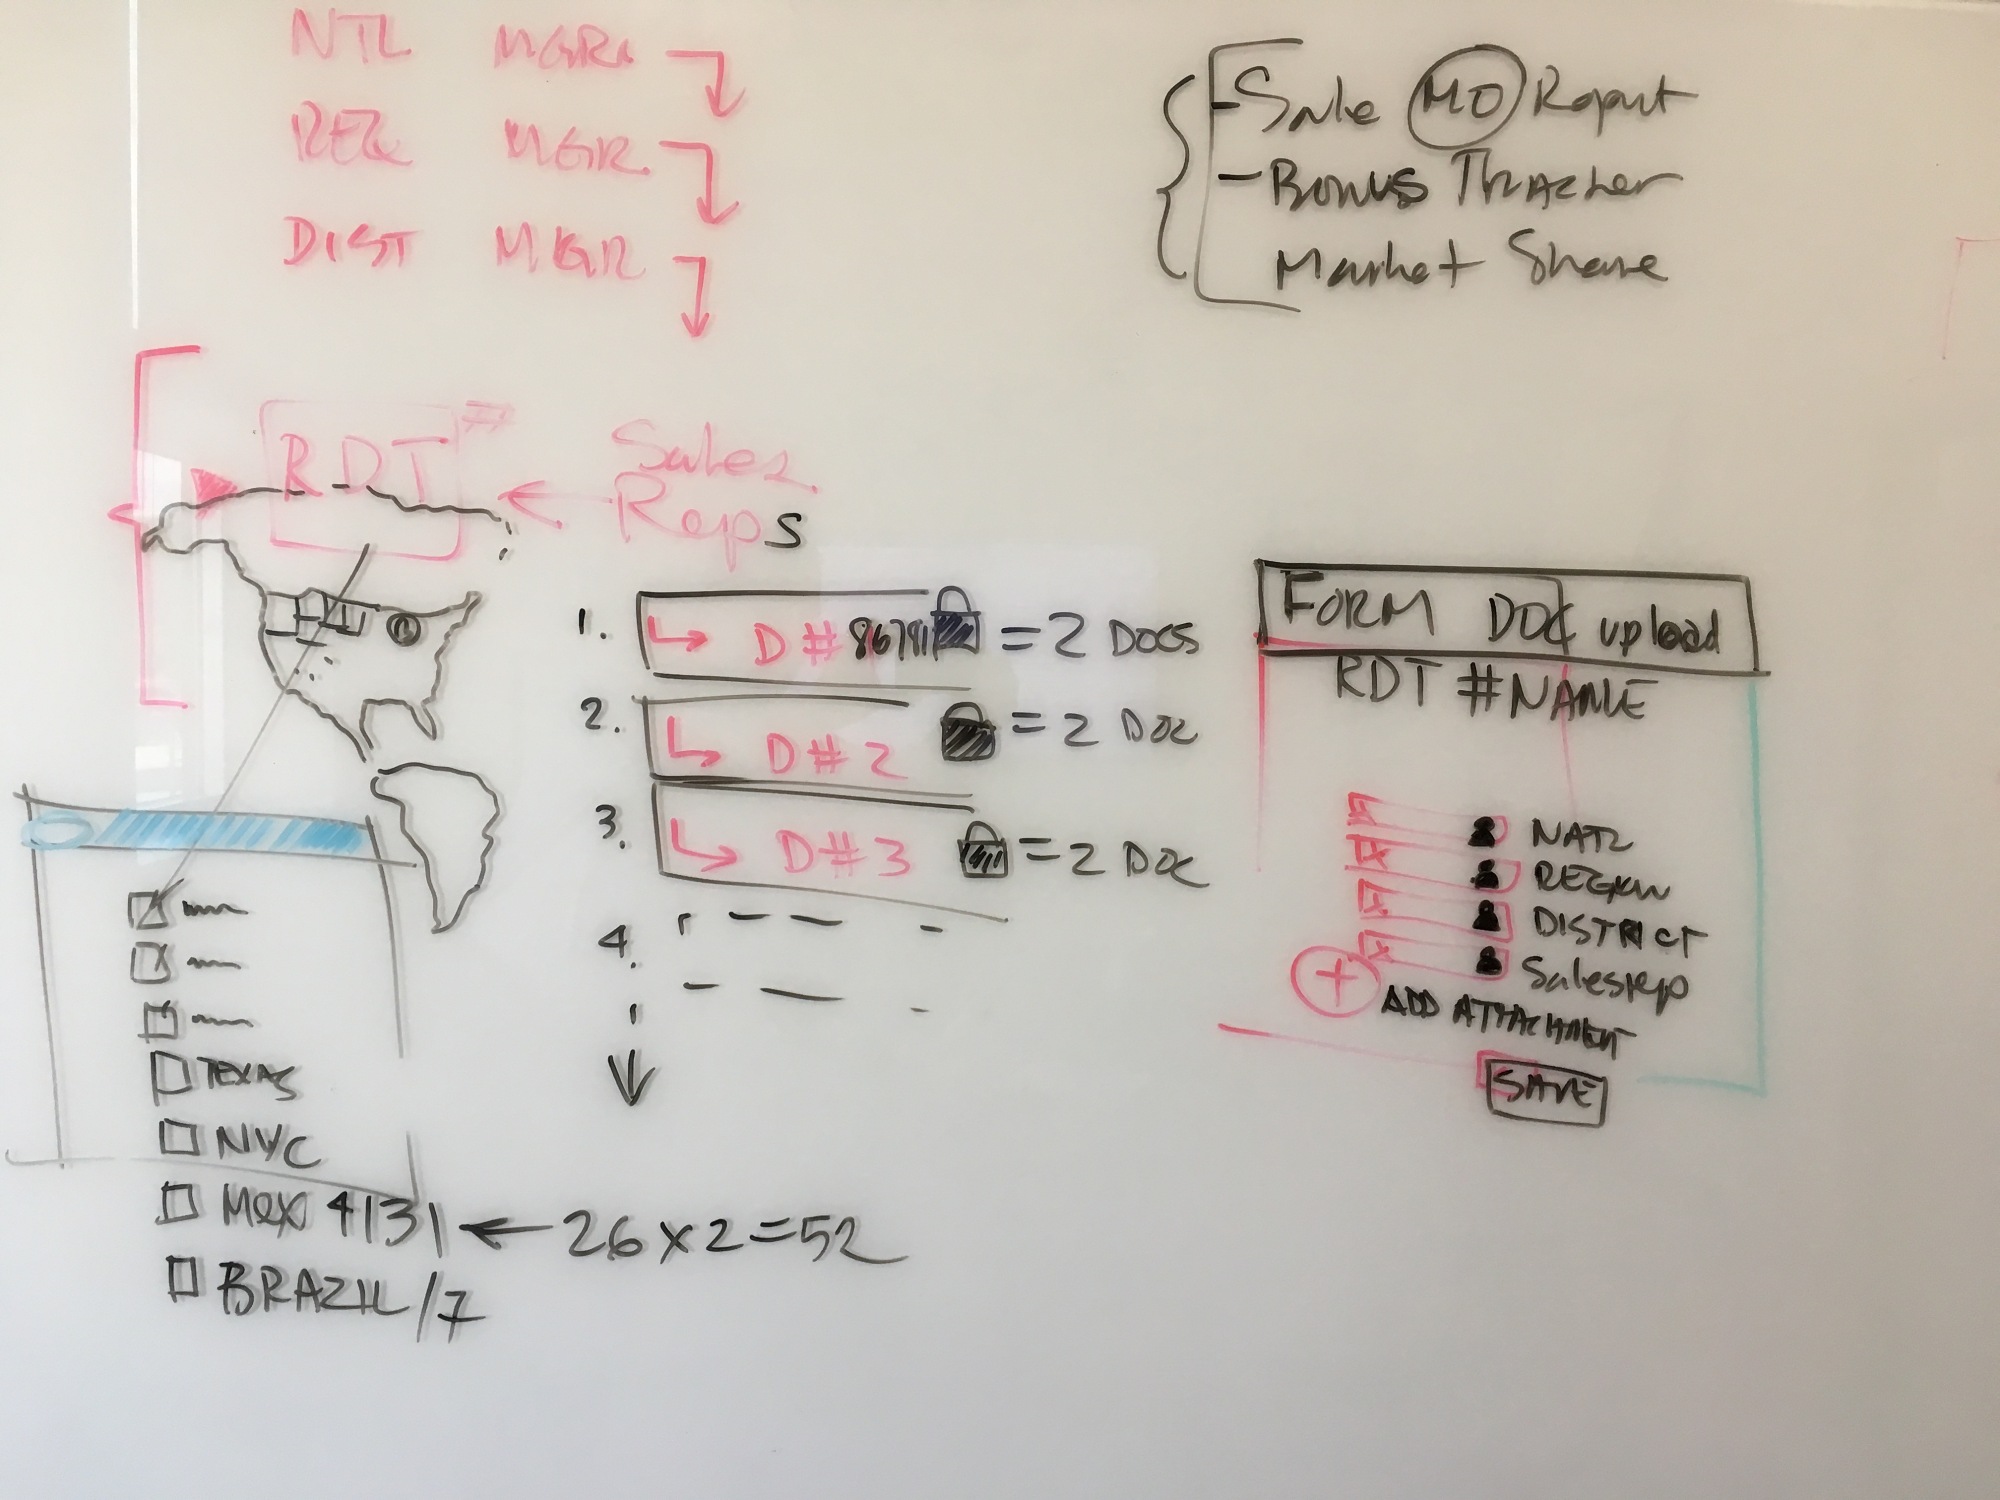 NTL MGR
REG MGR
DIST MGR
- Sale MO Report
- BONUS TRACKER
Market Share
RDT
Sales
Reps
1. D # 86791 = 2 DOCS
2. D # 2 = 2 DOC
3. D # 3 = 2 DOC
4.
FORM DOC upload
RDT # NAME
NATL
REGION
DISTRICT
Salesrep
+ ADD ATTACHMENT
SAVE
TEXAS
NYC
Mex 4131 ← 26 x 2 = 52
BRAZIL /7